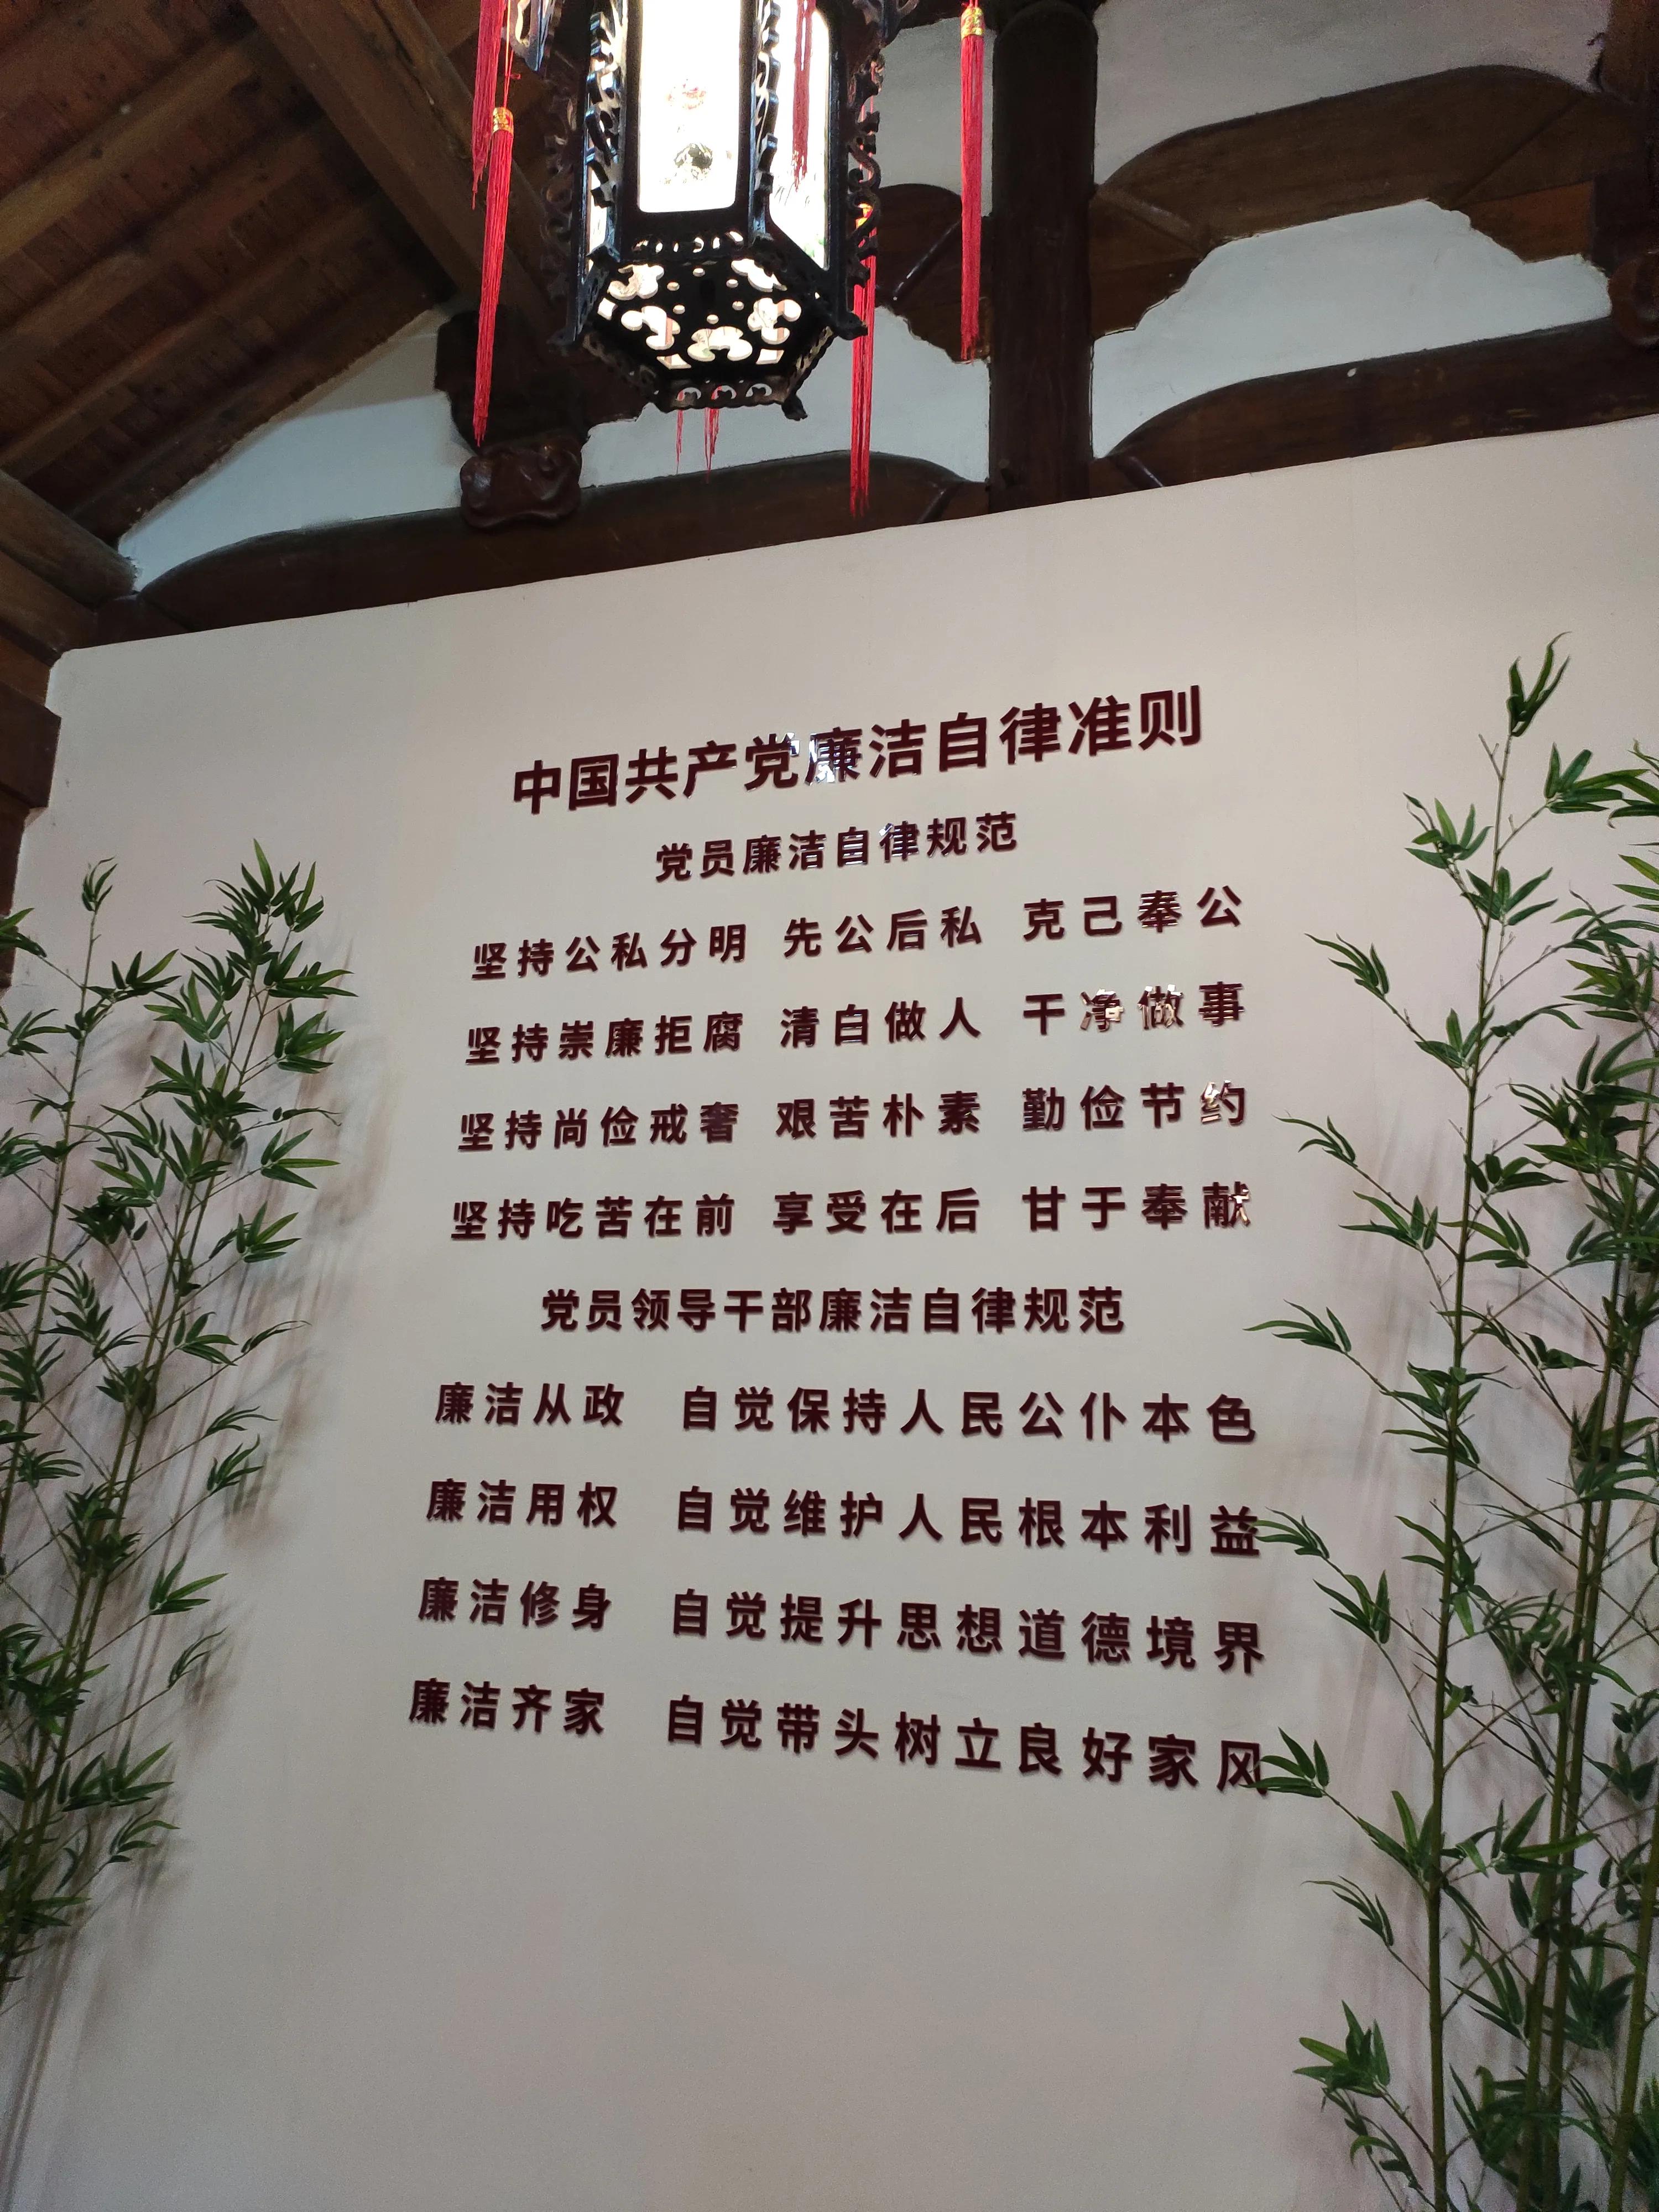 中国共产党廉洁自律准则
党员廉洁自律规范
坚持公私分明 先公后私 克己奉公
坚持崇廉拒腐 清白做人 干净做事
坚持尚俭戒奢 艰苦朴素 勤俭节约
坚持吃苦在前 享受在后 甘于奉献
党员领导干部廉洁自律规范
廉洁从政 自觉保持人民公仆本色
廉洁用权 自觉维护人民根本利益
廉洁修身 自觉提升思想道德境界
廉洁齐家 自觉带头树立良好家风